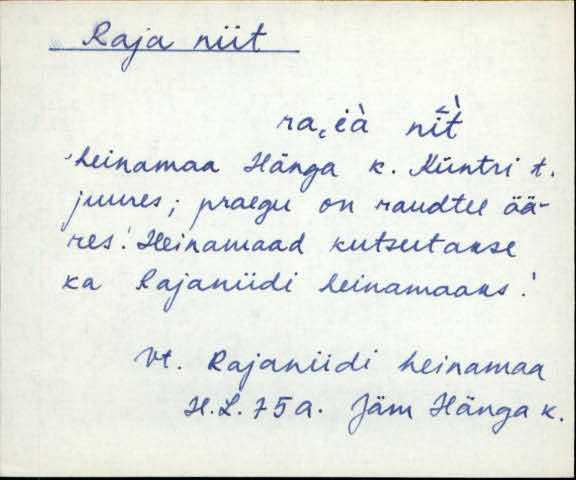 Raja niit
ra˛i̯à nī̀t
heinamaa Hänga k. Küntri t.
juures; praegu on raudtee ää-
res. Heinamaad kutsutakse
ka Rajaniidi heinamaaks.
Vt. Rajaniidi heinamaa
H.L. 75 a. Jäm Hänga k.